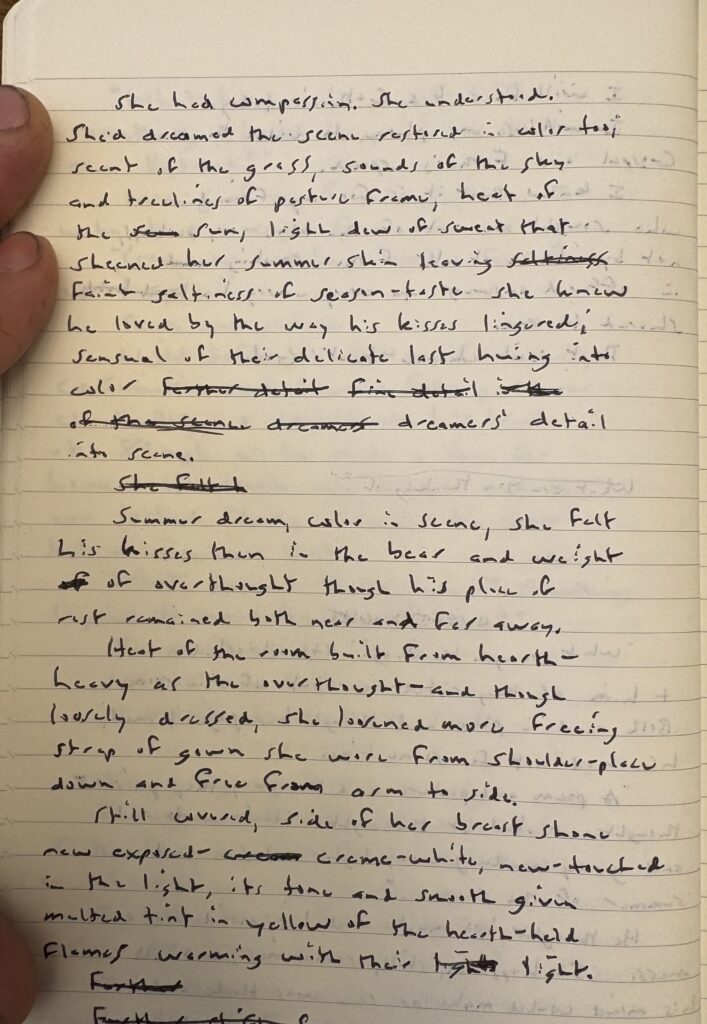 She had compassion. She understood.
She'd dreamed the scene restored in color too;
scent of the grass, sounds of the sky
and treelines of pasture frame, heat of
the sun, light dew of sweat that
sheened her summer skin leaving saltiness
faint saltiness of season-taste she knew
he loved by the way his kisses lingured;
sensual of their delicate last huing into
color further detail fine detail is the
of the scene dreamers dreamers' detail
into scene.
She felt h
Summer dream, color in scene, she felt
his kisses then in the bear and weight
of of overthought though his place of
rest remained both near and far away.
Heat of the room built from hearth-
heavy as the overthought-and though
loosely dressed, she loosened more freeing
strap of gown she wore from shoulder-place
down and free from arm to side.
Still covered, side of her breast shone
new exposed- cream creme-white, new-touched
in the light, its tone and smooth given
melted tint in yellow of the hearth-held
flames warming with their light light.
Further
Further